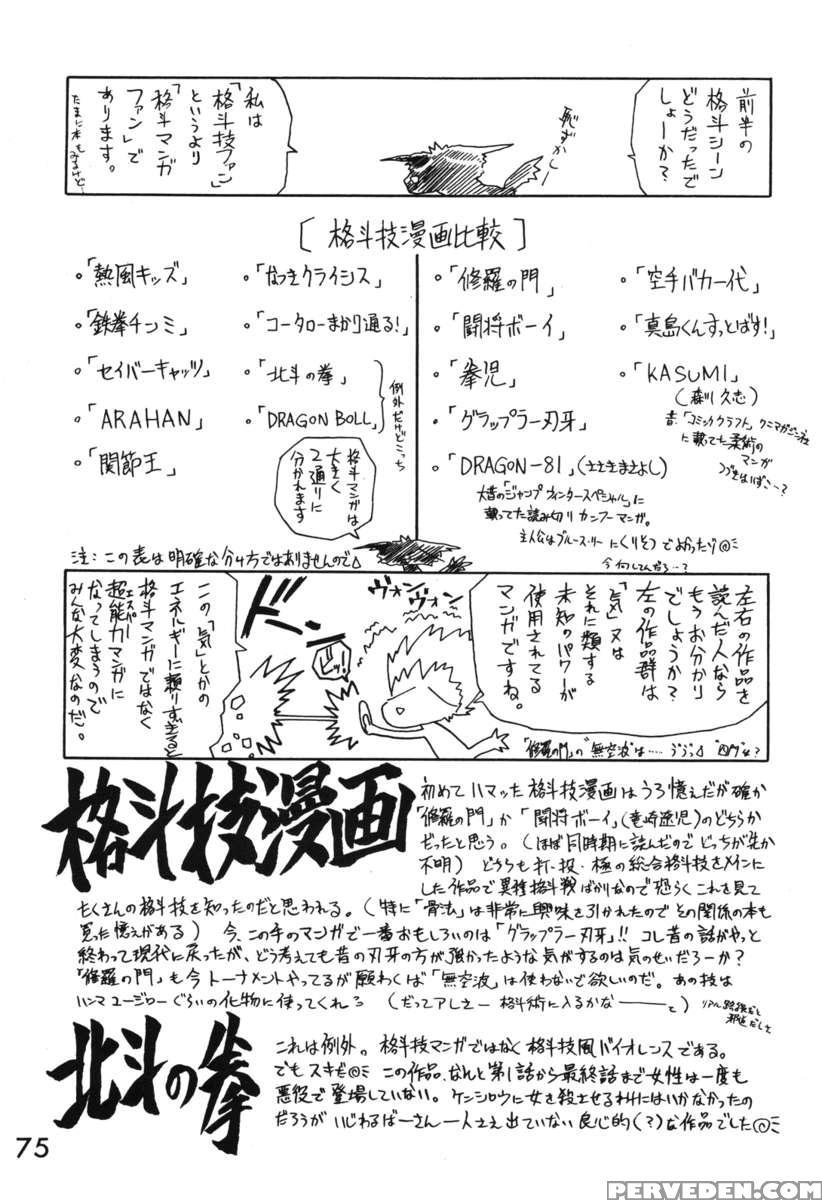 前半の
格斗シーン
どうだったで
しょーか?
恥ずかしー
私は
「格斗技ファン」
というより
「格斗マンガ
ファン」で
あります。
[格斗技漫画比較]
。「熱風キッズ」
。「鉄拳チンミ」
。「セイバーキャッツ」
。「ARAHAN」
。「関節王」
。「なつきクライシス」
。「コータローまかり通る!」
。「北斗の拳」
。「DRAGON BOLL」
例外だけどこっち
。「修羅の門」
。「闘将ボーイ」
。「拳児」
。「グラップラー刃牙」
。「DRAGON-81」(ささきまさよし)
大昔の「ジャンプウィンタースペシャル」に
載ってた読み切りカンフーマンガ。
主人公はブルース・リーにくりそつでよかったっス
。「空手バカ一代」
。「真島くんすっとばす!」
。「KASUMI」
(森川久志)
に載ってた柔術の
マンガ
格斗マンガは
大きく
2通りに
分かれます
注:この表は明確な分け方ではありませんので
左右の作品を
読んだ人なら
もうお分かり
でしょうか?
左の作品群は
「気」又は
それに類する
未知のパワーが
使用されてる
マンガですね。
ヴォン
ヴォン
ドン
この「気」とかの
エネルギーに頼りすぎると
格斗マンガではなく
超能力マンガに
エスパー
なってしまうので
みんな大変なのだ。
「修羅の門」の"無空波"は……
格斗技漫画
初めてハマッた格斗技漫画はうろ憶えだが確か
「修羅の門」か「闘将ボーイ」(竜崎遼児)のどちらか
だったと思う。(ほぼ同時期に読んだのでどっちが先か
不明) どちらも打・投・極の総合格斗技をメインに
した作品で異種格斗戦ばかりなので恐らくこれを見て
たくさんの格斗技を知ったのだと思われる。(特に「骨法」は非常に興味を引かれたのでその関係の本も
買った憶えがある) 今、この手のマンガで一番おもしろいのは「グラップラー刃牙」!! コレ昔の話がやっと
終わって現代に戻ったが、どう考えても昔の刃牙の方が強かったような気がするのは気のせいだろーか?
「修羅の門」も今トーナメントやってるが願わくば「無空波」は使わないで欲しいのだ。あの技は
ハンマユージローぐらいの化物に使ってくれ (だってアレさー格斗術に入るかなーーーと)
北斗の拳
これは例外。格斗技マンガではなく格斗技風バイオレンスである。
でもスキさ この作品、なんと第1話から最終話まで女性は一度も
悪役で登場していない。ケンシロウに女を殺させるわけにはいかなかったの
だろうがいじわるばーさん一人さえ出ていない良心的(?)な作品でした
75
PERVEDEN.COM